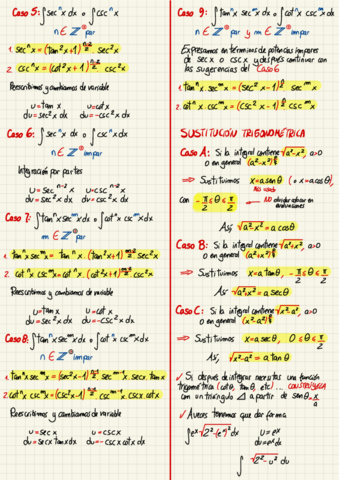 Caso 5: ∫secⁿx dx o ∫cscⁿx
n ∈ Z⊕ par
1. secⁿx = (tan²x+1)^((n-2)/2) · sec²x
2. cscⁿx = (cot²x+1)^((n-2)/2) · csc²x
Reescribimos y cambiamos de variable
u = tan x u = cot x
du = sec²x dx du = -csc²x dx
Caso 6: ∫secⁿx dx o ∫cscⁿx dx
n ∈ Z⊕ impar
Integración por partes
u = secⁿ⁻²x u = cscⁿ⁻²x
dv = sec²x dx dv = csc²x dx
Caso 7: ∫tanⁿx secᵐx dx o ∫cotⁿx cscᵐx dx
m ∈ Z⊕ par
1. tanⁿx secᵐx = tanⁿx · (tan²x+1)^((m-2)/2) · sec²x
2. cotⁿx cscᵐx = cotⁿx · (cot²x+1)^((m-2)/2) · csc²x
Reescribimos y cambiamos de variable
u = tan x u = cot x
du = sec²x dx du = -csc²x dx
Caso 8: ∫tanⁿx secᵐx dx o ∫cotⁿx cscᵐx dx
n ∈ Z⊕ impar
1. tanⁿx secᵐx = (sec²x-1)^((n-1)/2) secᵐ⁻¹x · sec x · tan x
2. cotⁿx cscᵐx = (csc²x-1)^((n-1)/2) · cscᵐ⁻¹x · csc x · cot x
Reescribimos y cambiamos de variable
u = sec x u = csc x
du = sec x tan x dx du = -csc x cot x dx
Caso 9: ∫tanⁿx secᵐx dx o ∫cotⁿx cscᵐx dx
n ∈ Z⊕ par y m ∈ Z⊕ impar
Expresamos en términos de potencias impares
de sec x o csc x y después continuar con
las sugerencias del Caso 6
1. tanⁿx · secᵐx = (sec²x-1)^(n/2) · secᵐx
2. cotⁿx · cscᵐx = (csc²x-1)^(n/2) · cscᵐx
SUSTITUCIÓN TRIGONOMÉTRICA
Caso A: Si la integral contiene √(a²-x²), a>0
o en general
⇒ Sustituimos x = a sen θ (o x = a cos θ),
con -π/2 ≤ θ ≤ π/2 NO olvidar
Así √(a²-x²) = a cos θ
Caso B: Si la integral contiene √(a²+x²), a>0
o en general
⇒ Sustituimos x = a tan θ, -π/2 ≤ θ ≤ π/2
Así, √(a²+x²) = a sec θ
Caso C: Si la integral contiene √(x²-a²), a>0
o en general
⇒ Sustituimos x = a sec θ, 0 ≤ θ ≤ π/2
Así, √(x²-a²) = a tan θ
✓ Si después de integrar necesitas una función
trigonométrica (cot θ, tan θ, etc) ... CONSTRÚYELA
con un triángulo △ a partir de sen θ = x/a
✓ A veces tenemos que dar forma
∫eˣ √(2²-(eˣ)²) dx u = eˣ
du = eˣ dx
∫√(2²-u²) du